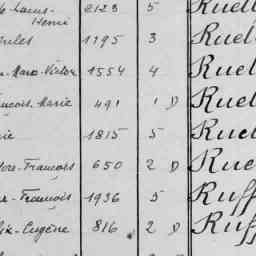 Louis- 2123 5 Ruell
Henri
ules 1195 3 Ruell
Marie-Victor 1554 4 Ruel
ançois-Marie 491 1 D Ruel
rie 1815 5 Rue
tore-François 650 2 D Rue
e-François 1936 5 Ruff
lix-Eugène 816 2 D Ruff